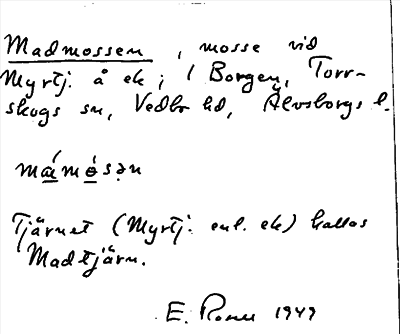 Madmossen, mosse vid
Myrtj. å ek; 1 Borgen, Torr-
skogs sn, Vedbo hd, Älvsborgs l.
Tjärnet (Myrtj. enl. ek) kallas
Madtjärn.
E. 1949